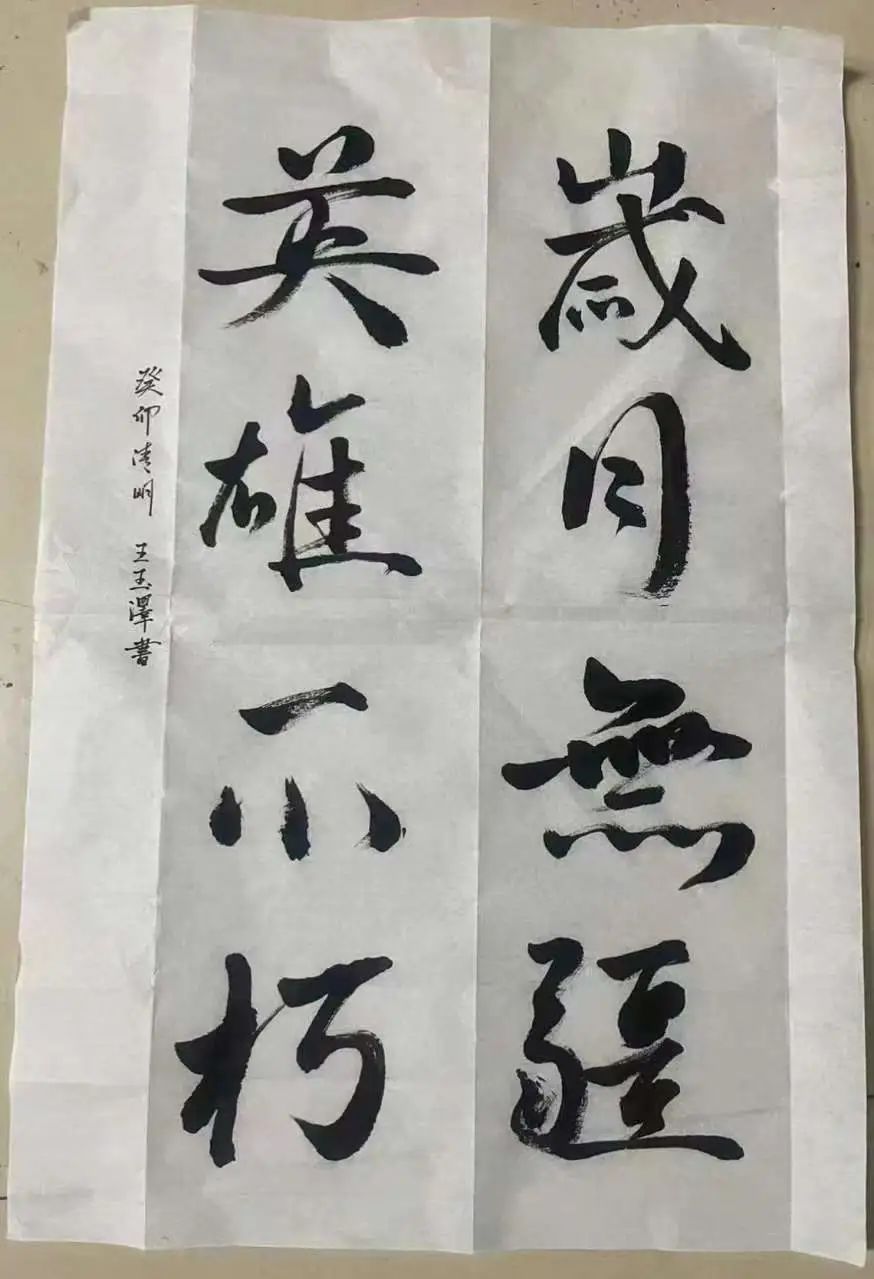 歲月無疆
英雄不朽
癸卯清明 王玉澤書